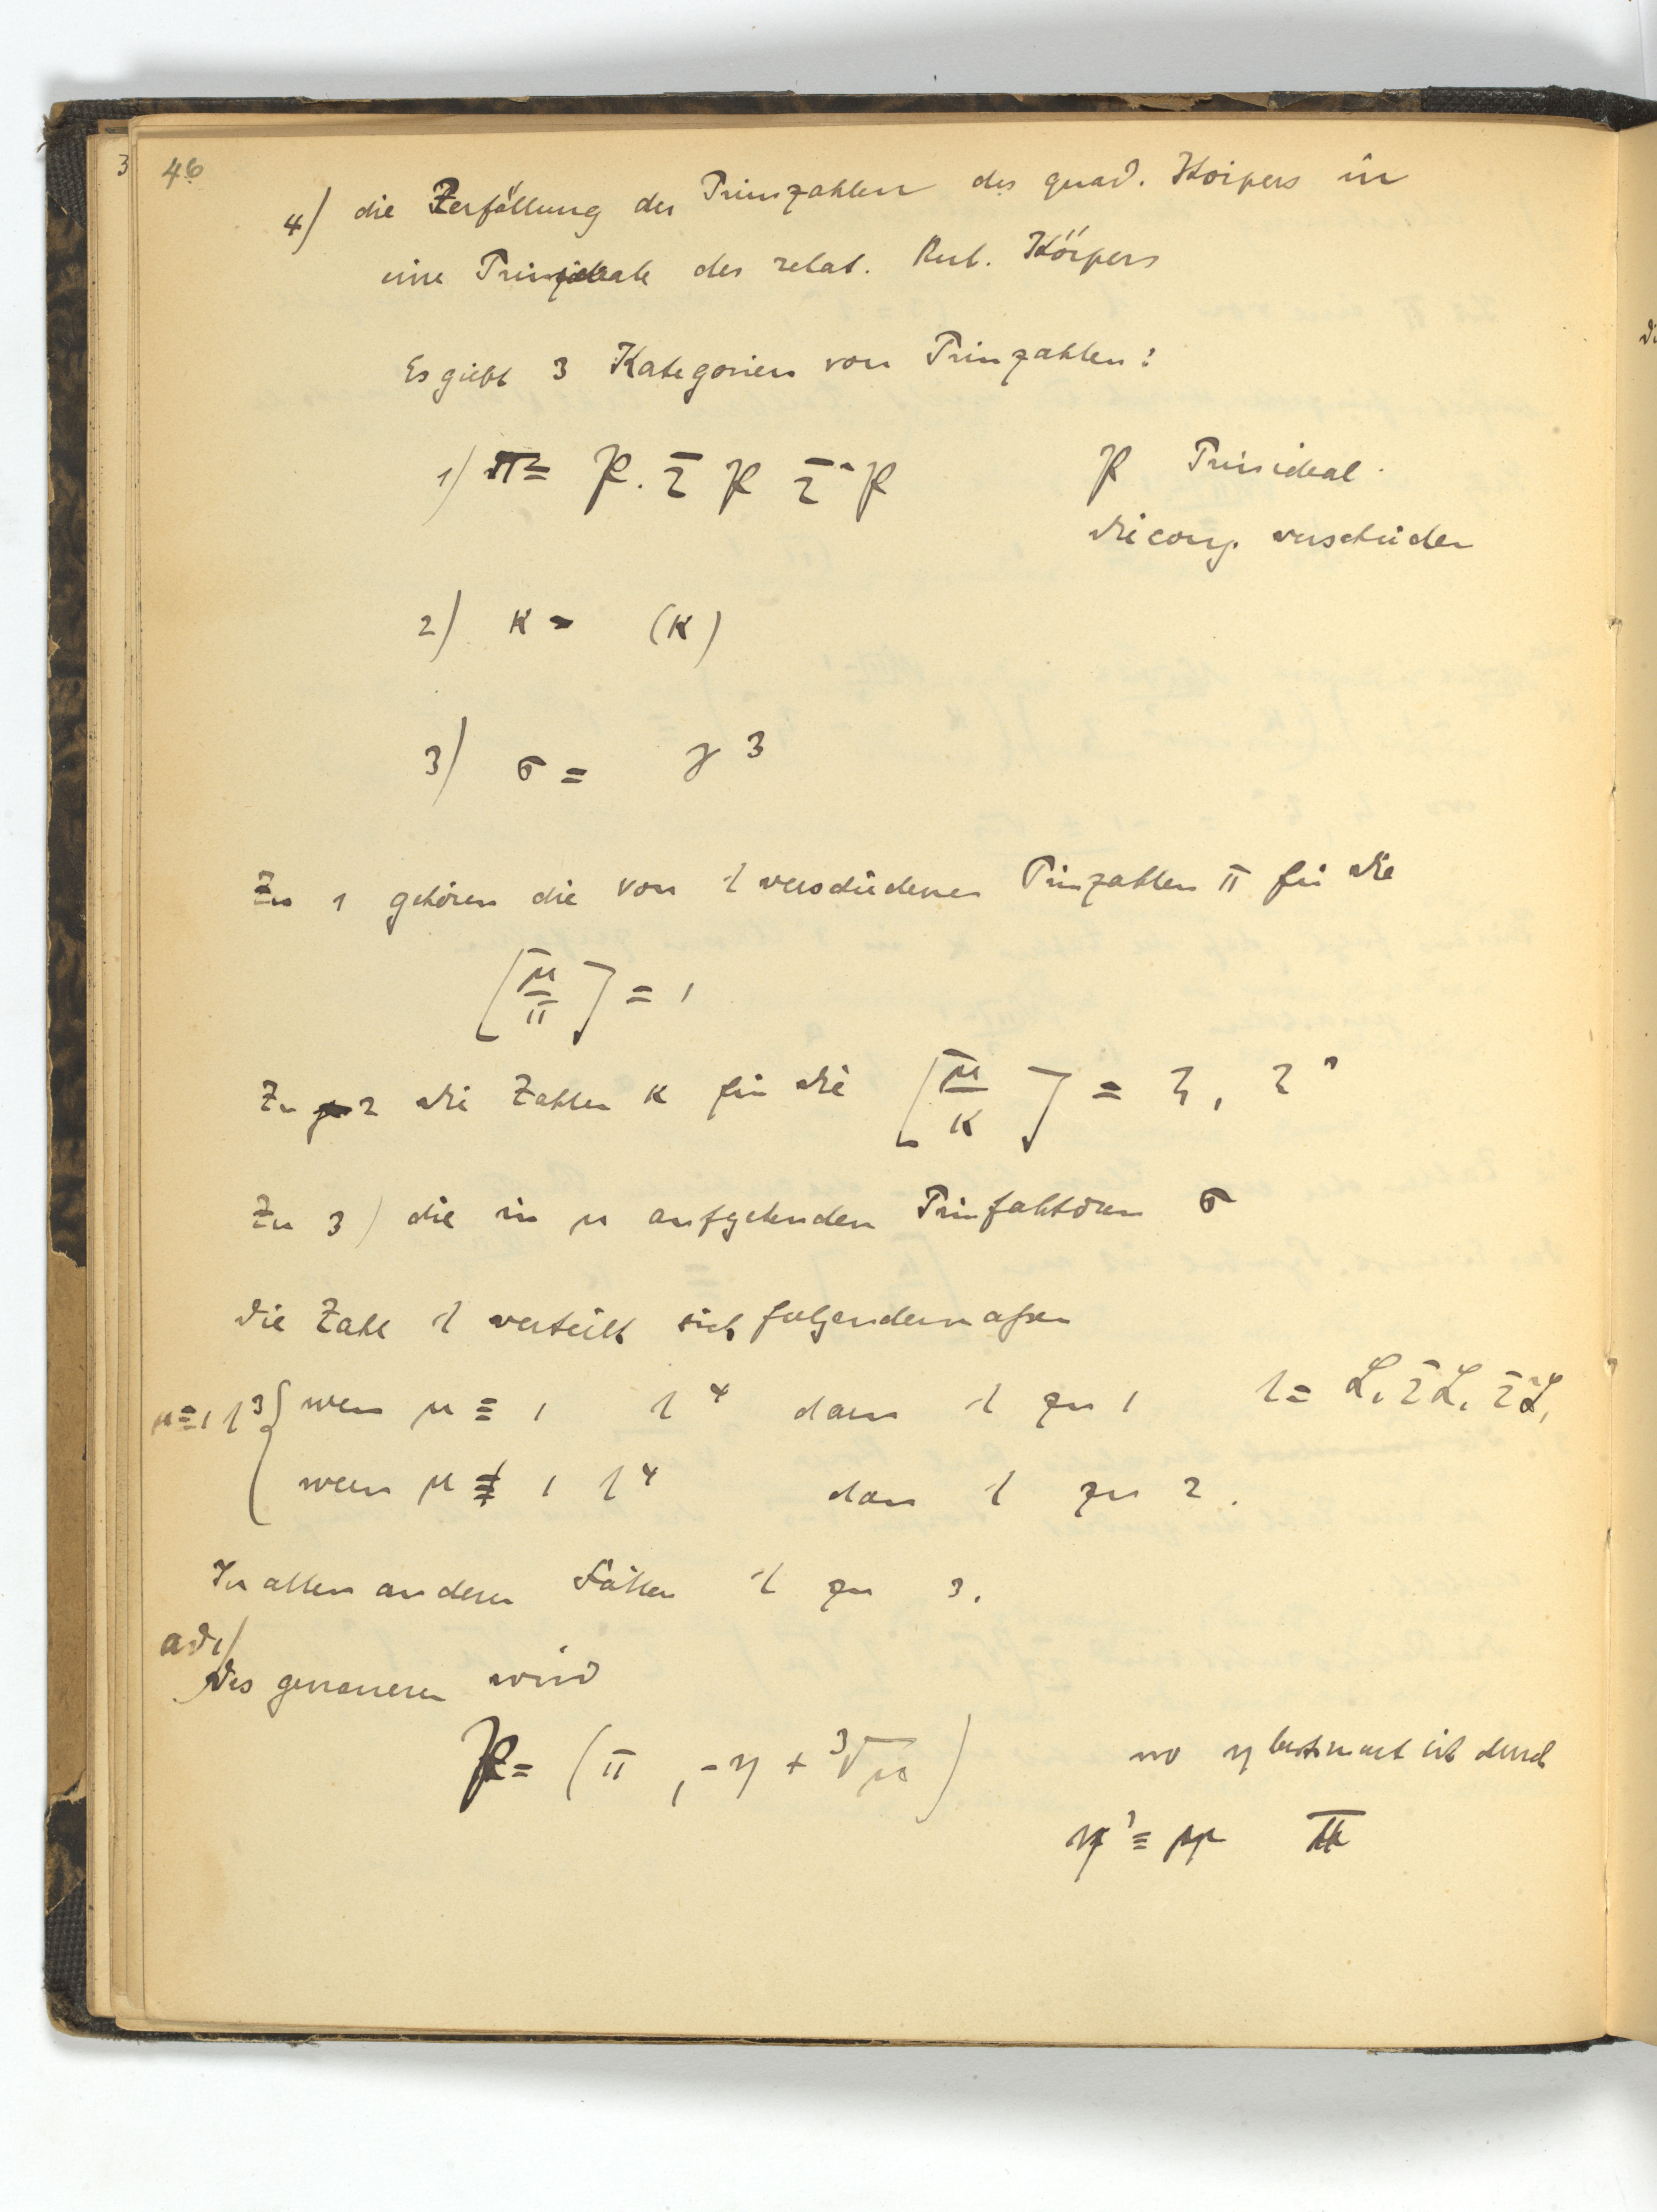 3 46
4) die Zerfällung der Primzahlen des quad. Körpers in
eine Primideale des relat. Kub. Körpers
Es giebt 3 Kategorien von Primzahlen:
1) π = 𝔓 . Σ 𝔓 Σ² 𝔓 𝔓 Primideal.
die conj. verschieden
2) κ = (κ)
3) σ = 𝔶 ³
Zu 1 gehören die von λ verschiedenen Primzahlen π für die
[μ/π] = 1
Zu 2 die Zahlen κ für die [μ/κ] = ζ, ζ²
Zu 3) die in μ aufgehenden Primfaktoren σ
die Zahl λ verteilt sich folgendermaßen
μ≡1 λ³ { wenn μ ≡ 1 λ⁴ dann λ zu 1 λ = 𝔏. Σ𝔏. Σ²𝔏,
wenn μ ≢ 1 λ⁴ dann λ zu 2.
In allen anderen Fällen λ zu 3.
ad 1)
Des genaueren wird
𝔓 = (π, -η + ³√μ) wo η bestimmt ist durch
η³ ≡ μ π